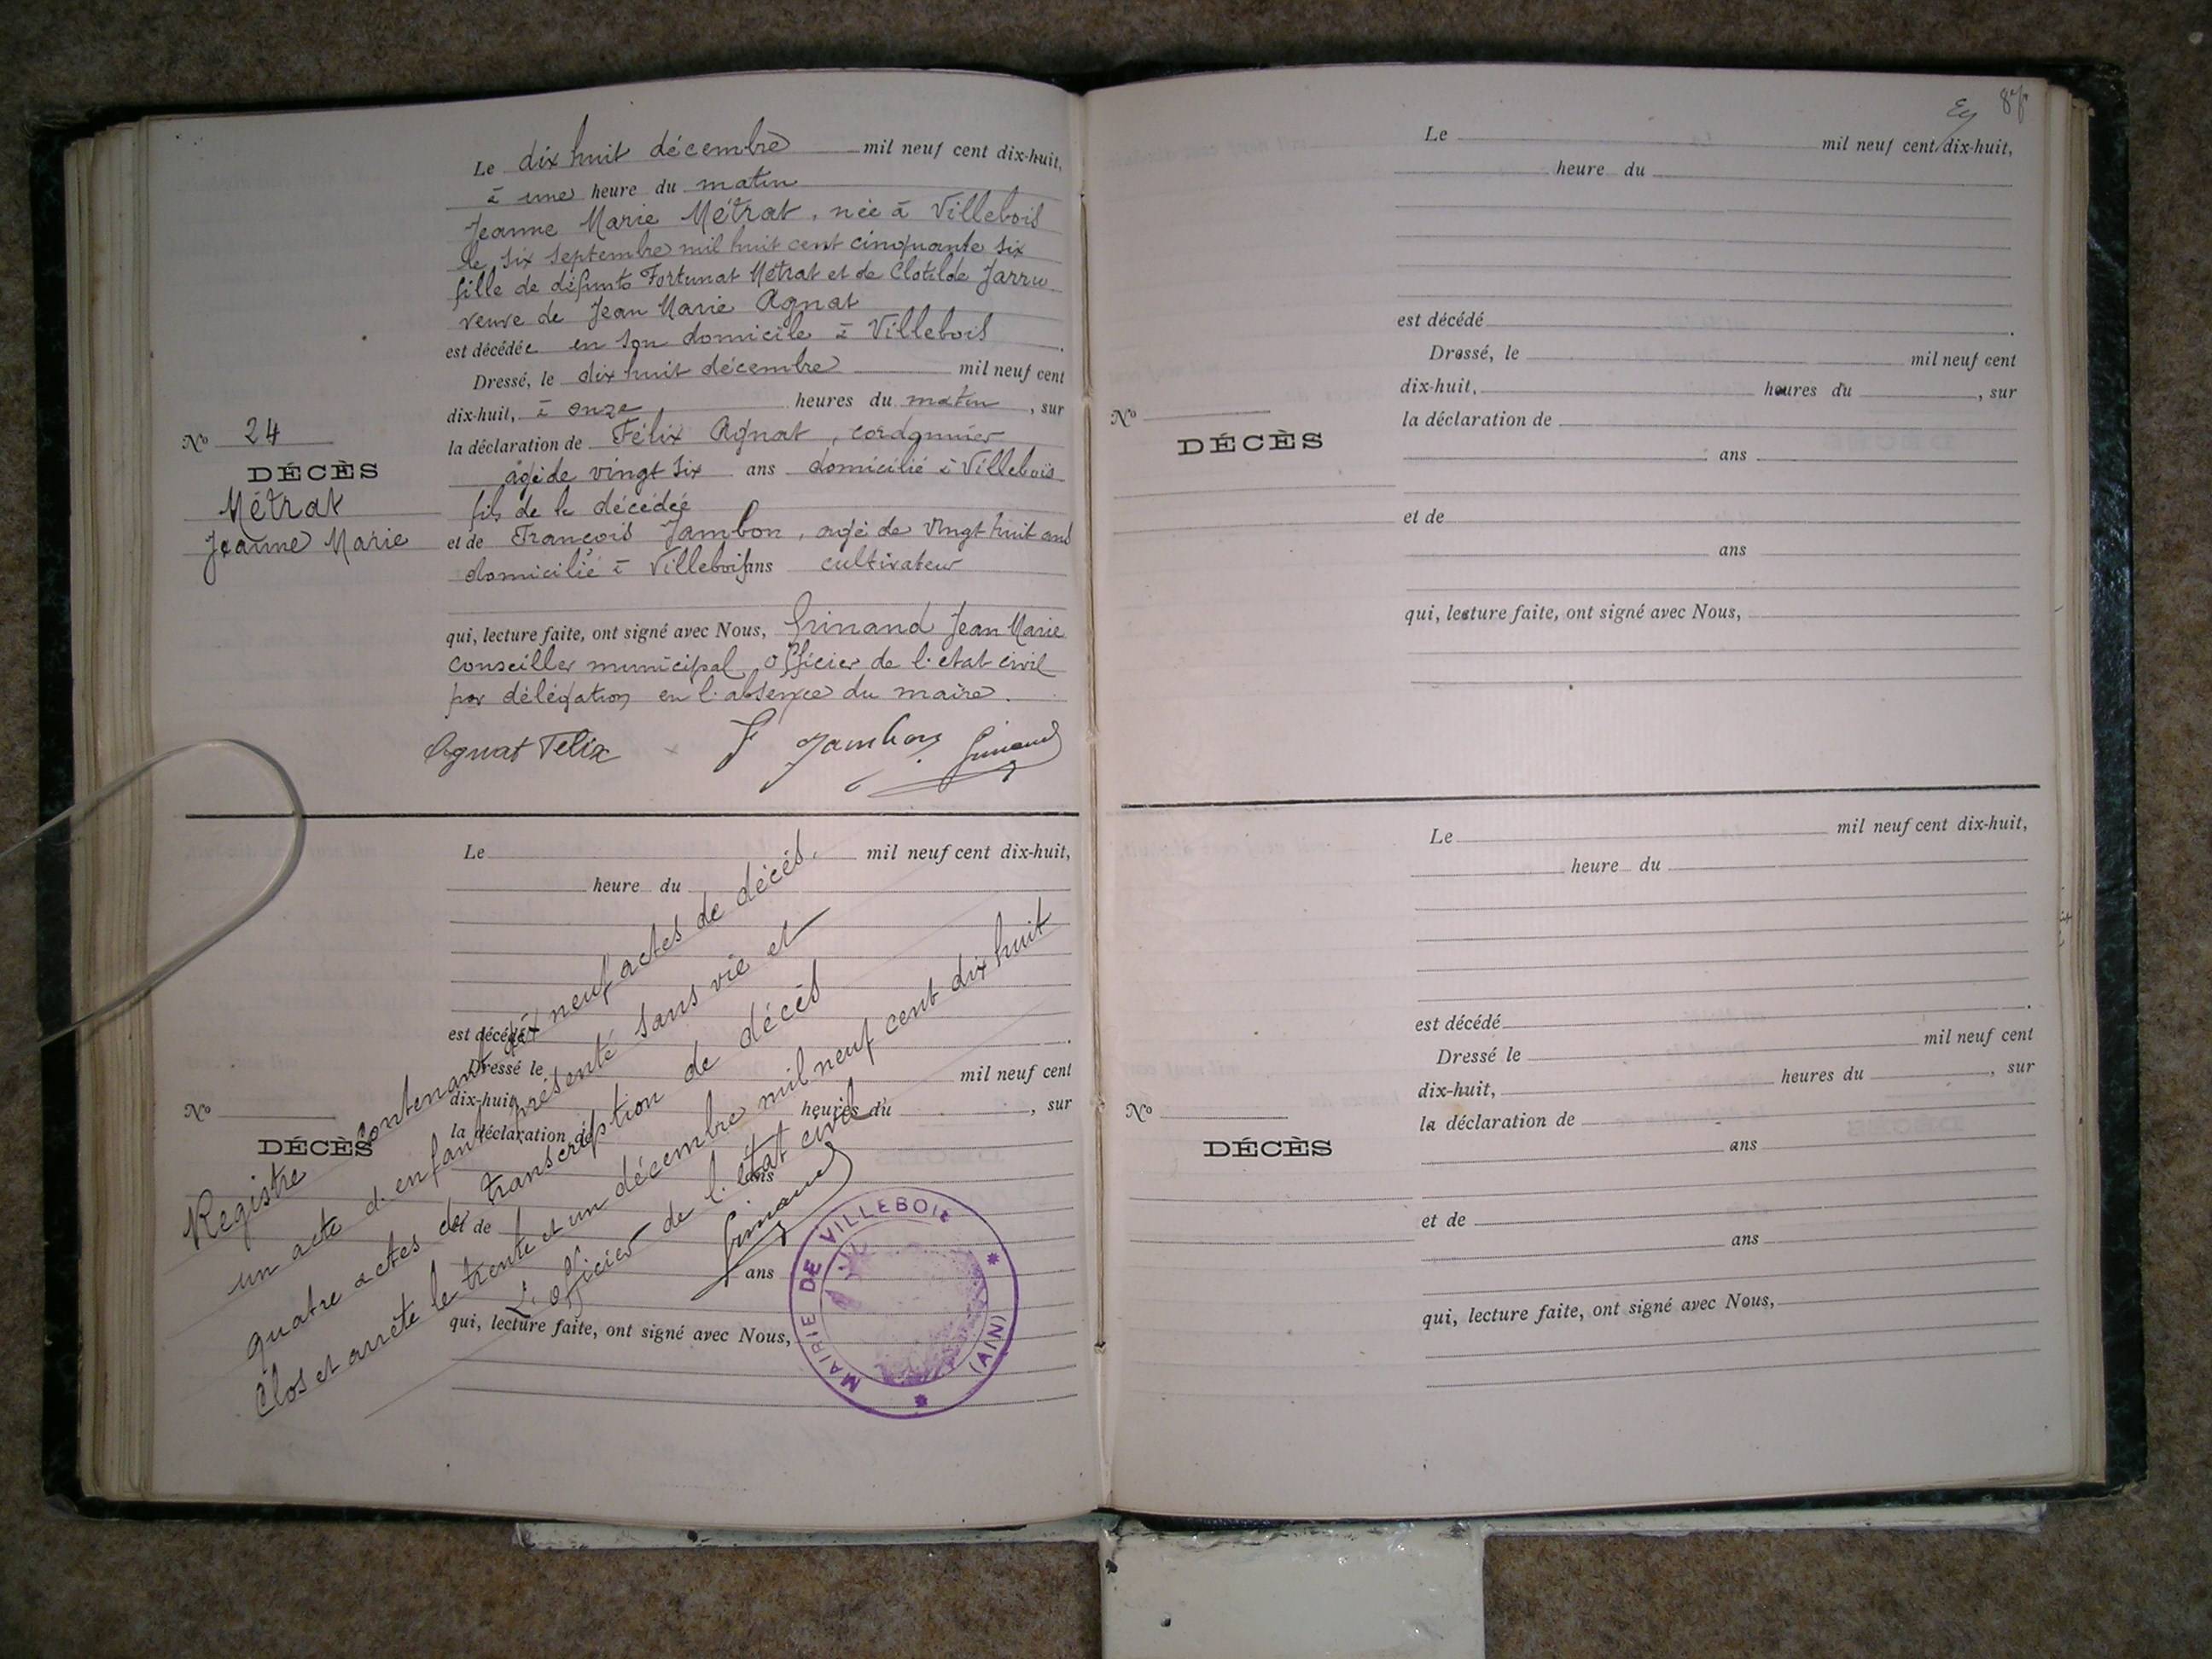 Le dix huit décembre mil neuf cent dix-huit,
à une heure du matin
Jeanne Marie Métrat, née à Villebois
le six septembre mil huit cent cinquante six
fille de défunts Fortunat Métrat et de Clotilde Jarru
veuve de Jean Marie Agnat
est décédée en son domicile à Villebois.
Dressé, le dix huit décembre mil neuf cent
dix-huit, à onze heures du matin, sur
la déclaration de Félix Agnat, cordonnier
âgé de vingt six ans domicilié à Villebois
fils de la décédée
et de François Jambon, âgé de vingt huit ans
domicilié à Villebois ans cultivateur
qui, lecture faite, ont signé avec Nous, Grinand Jean Marie
conseiller municipal, officier de l'état civil
par délégation en l'absence du maire.
Agnat Félix F Jambon Grinand
No 24
DÉCÈS
Métrat
Jeanne Marie
Le mil neuf cent dix-huit,
heure du
est décédé
Dressé le mil neuf cent
dix-huit, heures du , sur
la déclaration de
ans
et de
ans
qui, lecture faite, ont signé avec Nous,
No
DÉCÈS
Registre contenant dix neuf actes de décès.
un acte d'enfant présenté sans vie et
quatre actes de transcription de décès
Clos et arrêté le trente et un décembre mil neuf cent dix huit
L'officier de l'état civil
Grinand
MAIRIE DE VILLEBOIS
(AIN)
87
Le mil neuf cent dix-huit,
heure du
est décédé .
Dressé, le mil neuf cent
dix-huit, heures du , sur
la déclaration de
ans
et de
ans
qui, lecture faite, ont signé avec Nous,
No
DÉCÈS
Le mil neuf cent dix-huit,
heure du
est décédé .
Dressé le mil neuf cent
dix-huit, heures du , sur
la déclaration de
ans
et de
ans
qui, lecture faite, ont signé avec Nous,
No
DÉCÈS